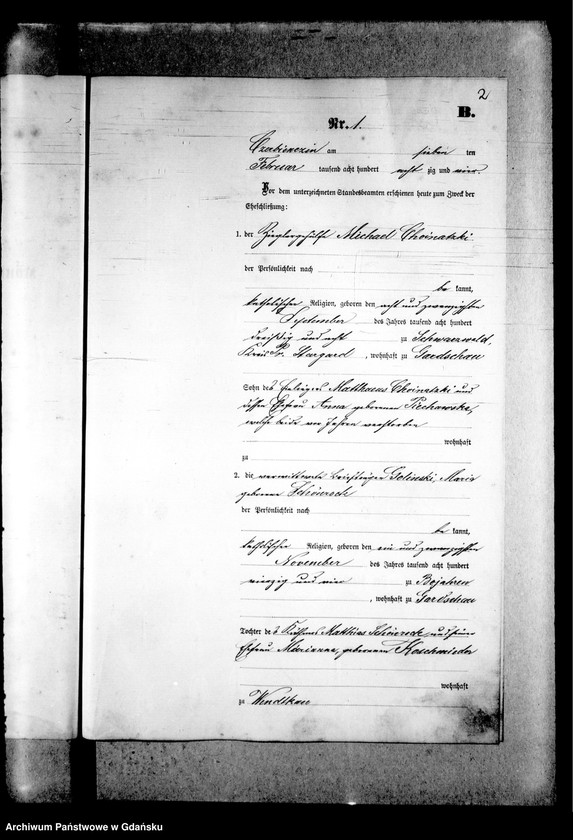 2
B.
Nr. 1.
Czarbienczin am sieben ten
Februar tausend acht hundert acht zig und vier.
Vor dem unterzeichneten Standesbeamten erschienen heute zum Zweck der
Eheschließung:
1. der Zieglergehülfe Michael Choinatzki
der Persönlichkeit nach
be kannt,
katholischer Religion, geboren den acht und zwanzigsten
September des Jahres tausend acht hundert
dreißig und acht zu Schwarzwald,
Kreis Pr. Stargard, wohnhaft zu Gardschau
Sohn des Matthaeus Choinatzki und
dessen Ehefrau Anna geborenen Piechowska,
welche beide vor Jahren verstorben
wohnhaft
zu
2. die verwittwete Golinski, Maria
geborene Schönrock
der Persönlichkeit nach
be kannt,
katholischer Religion, geboren den ein und zwanzigsten
November des Jahres tausend acht hundert
vierzig und vier zu Bojahren
, wohnhaft zu Gardschau
Tochter des Matthias Schönrock und seiner
Ehefrau Marianna, geborenen Koschmieder
wohnhaft
zu Wendtkau
Archiwum Państwowe w Gdańsku